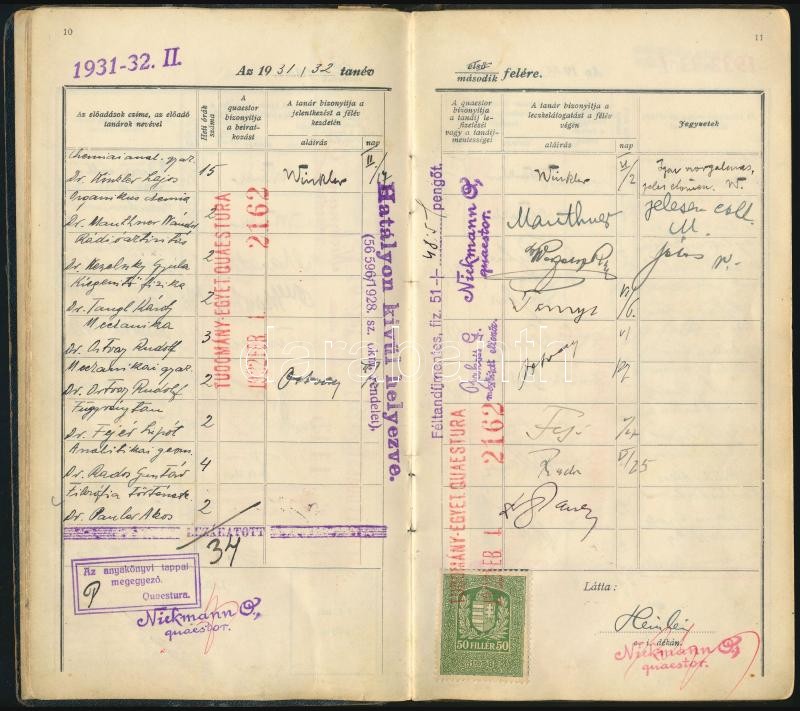 10
1931-32. II.
Az 1931/32 tanév
Az előadások címe, az előadó tanárok nevével
Heti órák száma
A quaestor bizonyítja a beiratkozást
A tanár bizonyítja a jelentkezést a félév kezdetén
aláírás
nap
Chemiai anal. gyak.
Dr. Winkler Lajos 15 Winkler
Organikus chemia
Dr. Mauthner Nándor 2
Radioaktivitás
Dr. Weszelszky Gyula 2
Kiegészítő fizika
Dr. Tangl Károly 2
Mechanika
Dr. Ortvay Rudolf 3
Mechanikai gyak.
Dr. Ortvay Rudolf 2 Ortvay
Függvénytan
Dr. Fejér Lipót 2
Analitikai geom.
Dr. Rados Gusztáv 4
Filozófia története
Dr. Pauler Ákos 2
LEZÁRATOTT
34
TUDOMÁNY-EGYET. QUAESTURA
1932 FEBR. 1.
2162
Hatályon kívül helyezve.
(56596/1928. sz. vkm. rendelet).
Az anyakönyvi lappal
megegyező.
Quaestura.
Nickmann O.,
quaestor.
11
első
második felére.
A quaestor bizonyítja a tandíj lefizetését vagy a tandíjmentességet
A tanár bizonyítja a leckelátogatást a félév végén
aláírás
nap
Jegyzetek
Winkler VI/2 Igen szorgalmas,
jeles elmúen. W.
Mauthner jelesen coll.
M.
jeles
Fejér
Rados VI/25
Pauler
Féltandíjmentes, fiz. 51+ 48.5 pengőt.
Nickmann O.,
quaestor.
TUDOMÁNY-EGYET. QUAESTURA
FEBR. 1.
2162
50 FILLÉR 50
Látta:
e. i. dékán.
Nickmann O.,
quaestor.
darabanth